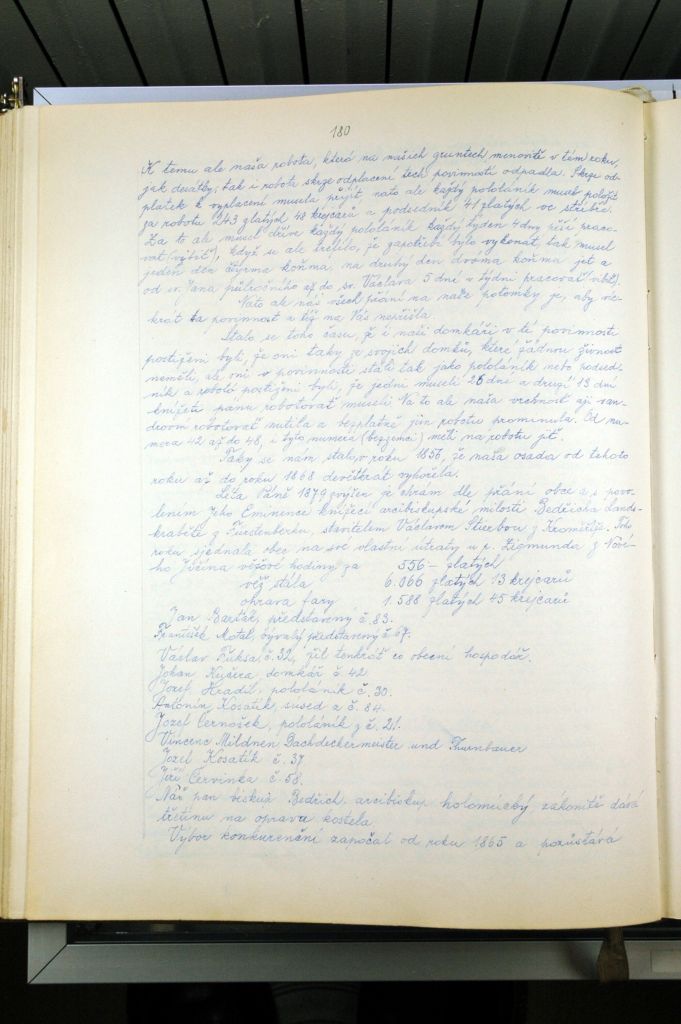 180
K temu ale naša robota, která na našich gruntech, menovitě v tém roku,
jak desátky, tak i robota skrze odplacení tech povinností odpadla. Skrze od-
platek k vyplacení musela přijít, nato ale každý pololáník musel položit
za robotu 243 zlatých 48 krejcarů a podsedník 41 zlatých ve stříbře.
Za to ale musel dříve každý pololáník každý týden 4 dny pěší praco-
vat (vybít), když se ale trefilo, že zapotřebí bylo vykonat, tak musel
jeden den čtyrma koňmá, na druhý den dvóma koňma jet a
od sv. Jana pěširočního až do sv. Václava 5 dní v týdni pracovať
Nato ale nás všech přání na naše potomky je, aby víc-
krát ta povinnost a tíž na Vás nepřišla.
Stalo se toho času, že i naši domkáři v té povinnosti
postiženi byli, že oni taky ze svojich domků, které žádnou živnost
neměli, ale oni v povinnosti stáli tak jako pololáník nebo podsed-
ník a robotó postiženi byli, že jedni museli 26 dně a druzí 13 dní
knížeti pánu robotovať museli. Na to ale naša vrchnost
robotovat nutila a bezplatně jim robotu prominula. Od nu-
mera 42 až do 48, i tyto numera (bezzemci) měli na robotu jít.
Taky se nám stalo, v roku 1856, že naša osada od tohoto
roku až do roku 1868 devětkrát vyhořela.
Léta Páně 1879 zvýšen je chrám dle přání obce a s povo-
lením Jeho Eminence knížecí arcibiskupské milosti Bedřicha Land-
kraběte z Fürstenberku, stavitelem Václavem z Kroměříže. Toho
roku sjednala obec na své vlastní útraty u p. Zigmunda z Nové-
ho Jičína věžové hodiny za 556 - zlatých
věž stála 6.066 zlatých 13 krejcarů
oprava fary 1.588 zlatých 45 krejcarů
Jan Barták, představený č. 83.
František Motal, bývalý představený č. 67.
Václav Fuksa, č. 32, žil tenkrát co obecní hospodář.
Johan Kyšera, domkář č. 42
Jozef Hradil, pololáník č. 30.
Antonín Kosatík, sused z č. 84.
Jozef Černošek, pololáník z č. 21.
Vincenc Mildner, Dachdeckermeister und Thurnbauer
Jozef Kosatík č. 37
Jiří Červinka č. 58.
Náš pan biskup Bedřich, arcibiskup holomúcký zákonitě dává
třetinu na opravu kostela
Výbor konkurenční započal od roku 1865 a pozůstává